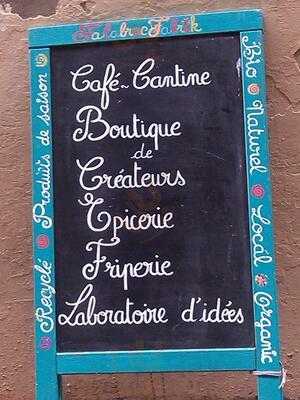 Kalabrac Fabrik
Café-Cantine
Boutique
de
Créateurs
Epicerie
Friperie
Laboratoire d'idées
Recyclé Produits de saison
Bio Naturel Local Organic